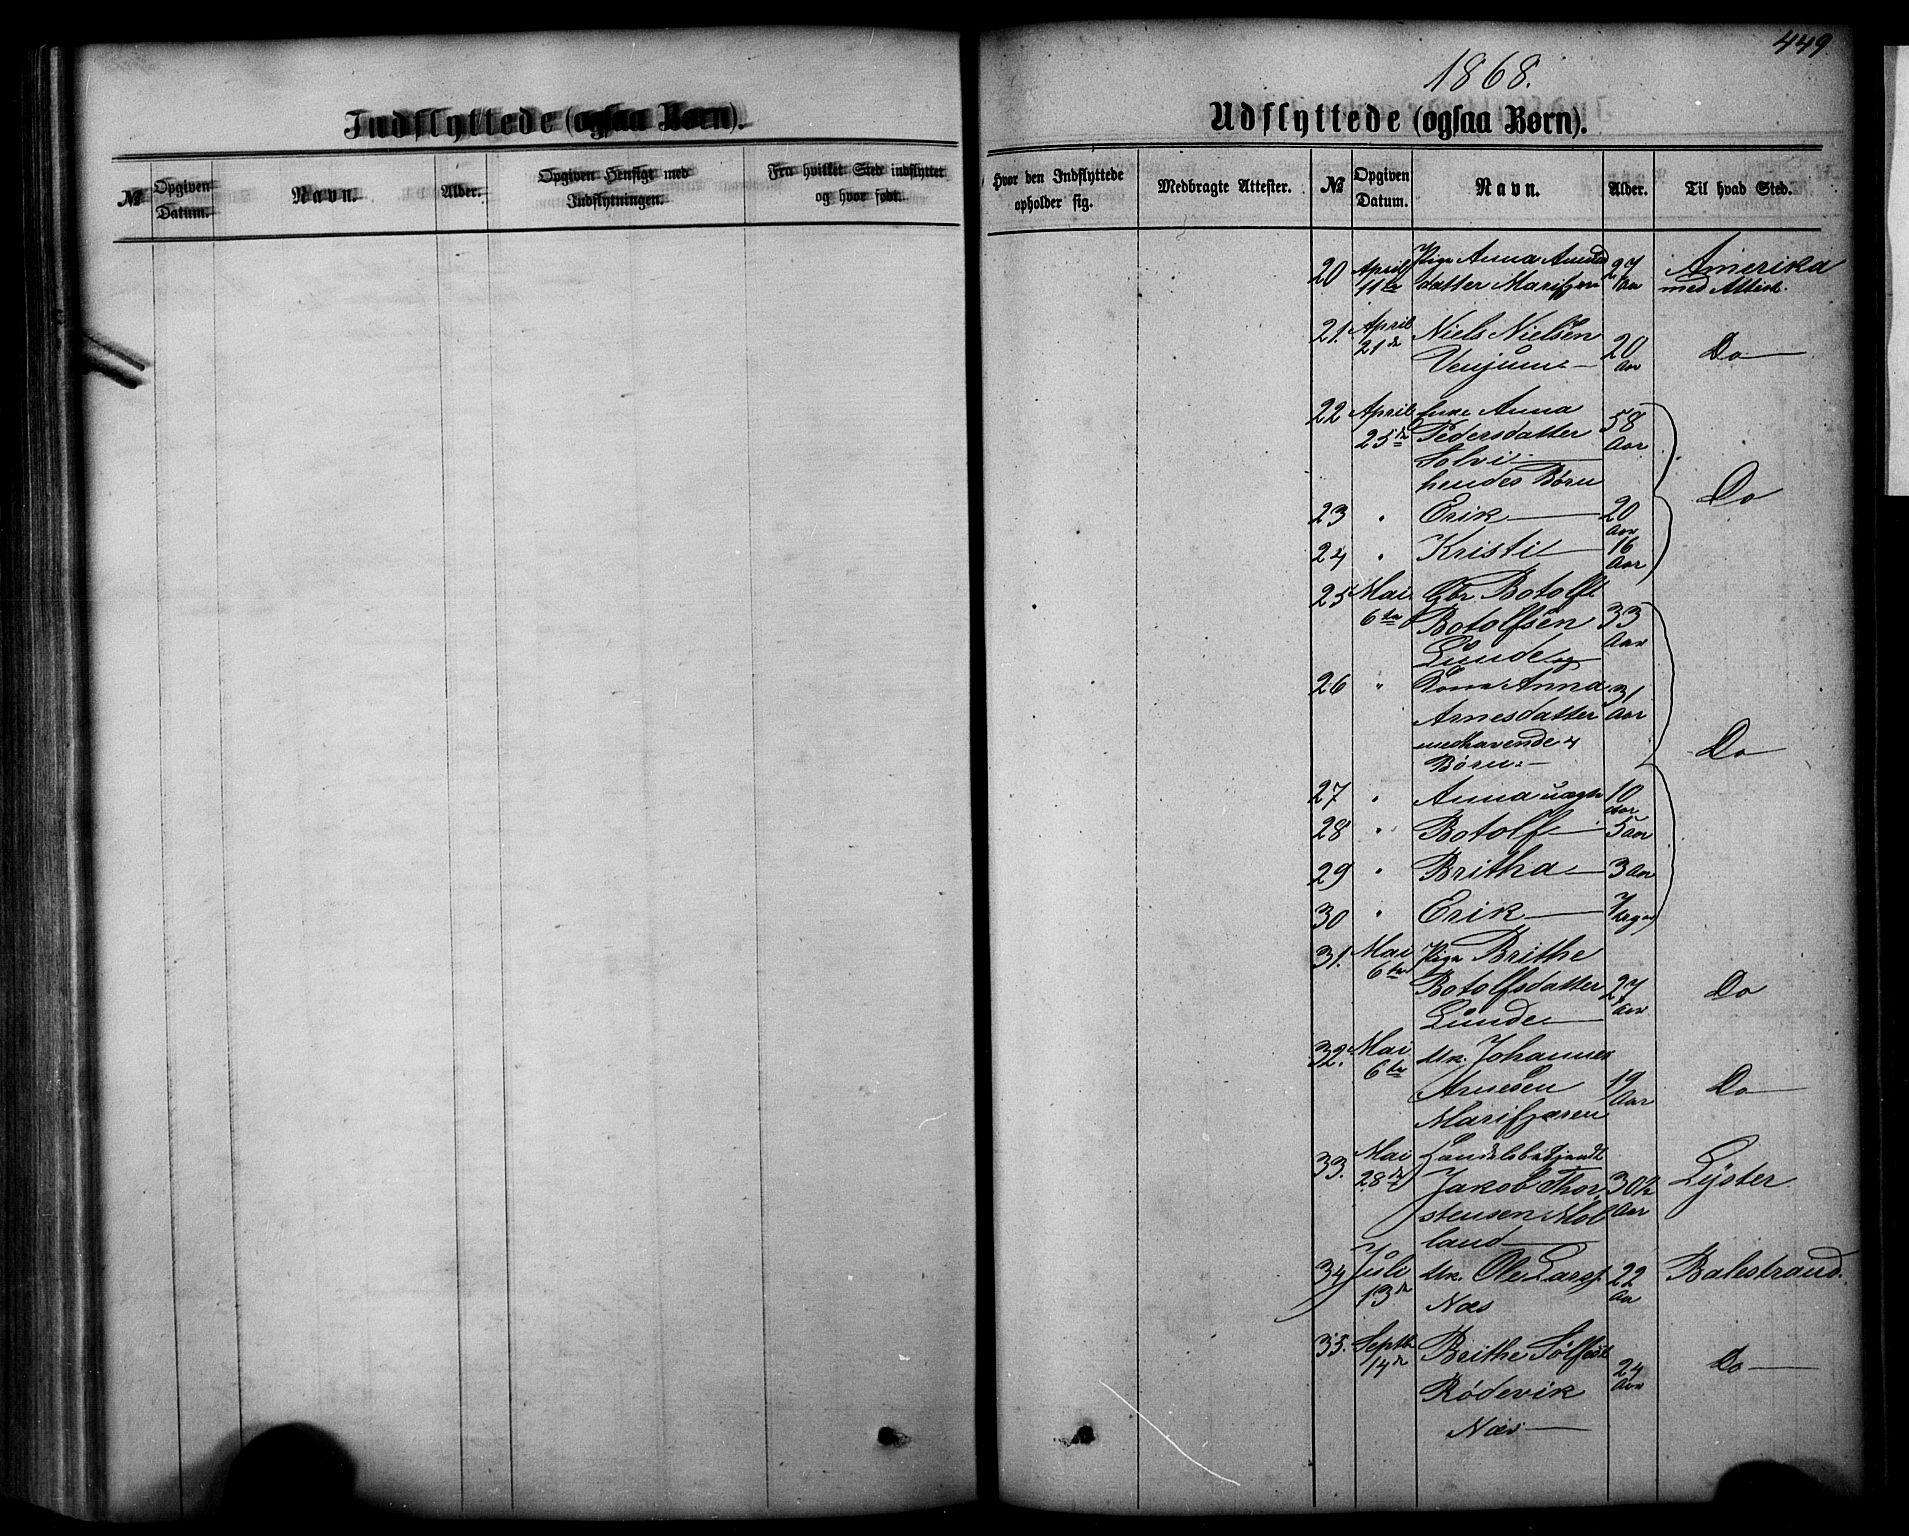 449
1868.
Indflyttede (ogsaa Børn).
Udflyttede (ogsaa Børn).
№ Opgiven Datum. Navn. Alder. Opgiven Hensigt med Indflytningen. Fra hvilket Sted indflyttet og hvor født.
Hvor den Indflyttede opholder sig. Medbragte Attester. № Opgiven Datum. Navn. Alder. Til hvad Sted.
20 April Pige Anna 27 Amerika
11te datter Marifjæren Aar med Attest.
21. April Niels Nielsen
21de Venjum 20 Aar Do
22 April Enke Anna
25de Pedersdatter 58
Solvi Aar
hendes Børn Do
23 " Erik 20 Aar
24 " Kristi 16 Aar
25 Mai Gbr. Botolf
6te Botolfsen 33
Lunde og Aar
26 " Kone Anna 31
Arnesdatter Aar
medhavende 4 Do
Børn:
27 " Anna uægte 10 Aar
28 " Botolf 5 Aar
29 " Britha 3 Aar
30 " Erik
31. Mai Pige Brithe
6te Botolfsdatter 27 Do
Lunde Aar
32. Mai Uk. Johannes
6te Arnesen 19 Do
Marifjæren Aar
33. Mai Handelsbetjendt
28de Jakob Thor 30½ Lyster
stensen Mol Aar
land
34 Juli Uk. Ole Lars. 22 Balestrand.
13de Næs Aar
35. Septb. Brithe
14de Rødevik 24 Aar Do
Næs